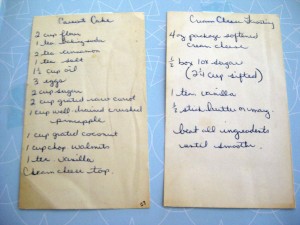 Carrot Cake
2 cup flour
1 tea baking soda
2 tea cinnamon
1 tea salt
1½ cup oil
3 eggs
2 cup sugar
2 cup grated raw carrot
1 cup well drained crushed
pineapple
1 cup grated coconut
1 cup chop walnuts
1 tea. vanilla
Cream cheese top.
Cream Cheese Frosting
4 oz package softened
cream cheese
½ box 10x sugar
(2¼ cup sifted)
1 tea vanilla
½ stick butter or marg.
beat all ingredients
until smooth.